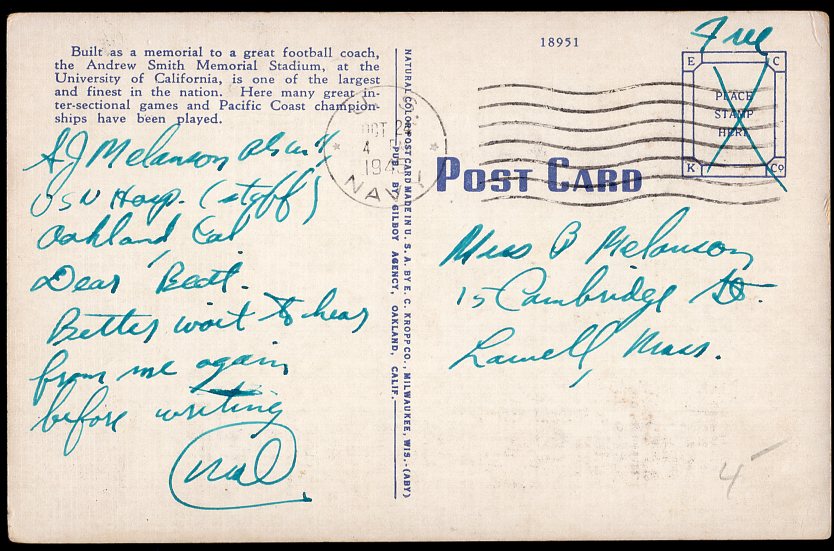 Built as a memorial to a great football coach,
the Andrew Smith Memorial Stadium, at the
University of California, is one of the largest
and finest in the nation. Here many great in-
ter-sectional games and Pacific Coast champion-
ships have been played.
A J Melanson
USN Hosp. (staff)
Oakland, Cal
Dear Beat.
Better wait to hear
from me again
before writing
NATURAL COLOR POST CARD MADE IN U. S. A. BY E. C. KROPP CO., MILWAUKEE, WIS.-(ABY)
PUB. BY GILBOY AGENCY, OAKLAND, CALIF.
18951
Free
E C
PLACE
STAMP
HERE
K Co
OCT 2
4
NAVY
POST CARD
Miss B Melanson
15 Cambridge St.
Lowell, Mass.
4